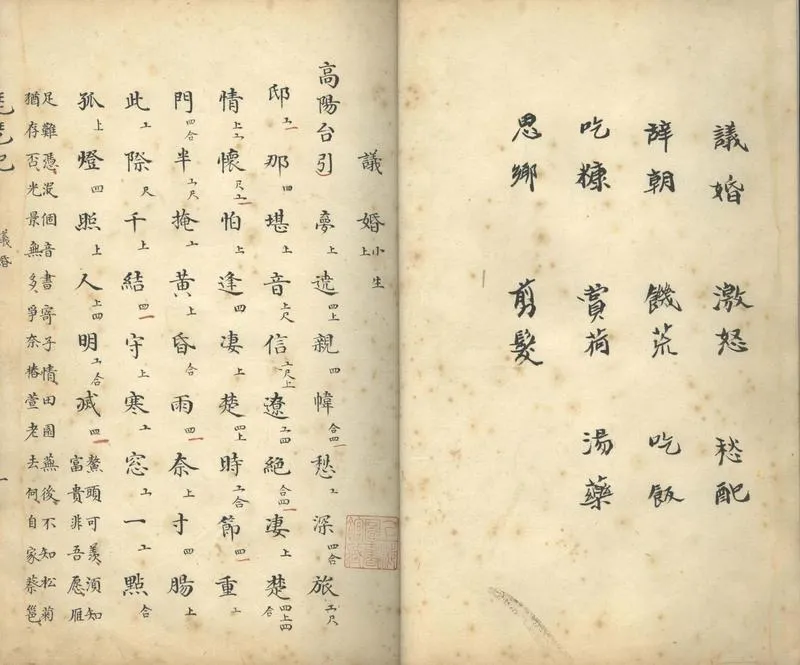 議婚 激怒 愁配
辞朝 饑荒 吃飯
吃糠 賞荷 湯藥
思鄉 剪髮
議婚 小生上
高陽台引 夢上遶四上親四幃合四一愁工深四合旅工尺
邸工一那四堪上音上尺信工尺上遼工四絕合四一凄上楚四上四合
情上工懷尺工一怕上逢四凄上楚四上時工合節四一重上
門四合半工尺掩工黃上昏合雨四一奈上寸四腸上
此工際尺千上結四一守上寒工窓工一工點合
孤上燈四照上人上四明工合滅四一
鰲頭可羨須知
富貴非吾愿雁
足難憑沒個音書寄子情田園蕪後不知松菊
猶存否光景無多爭奈椿萱老去何自家蔡邕
琵琶記 議婚 一